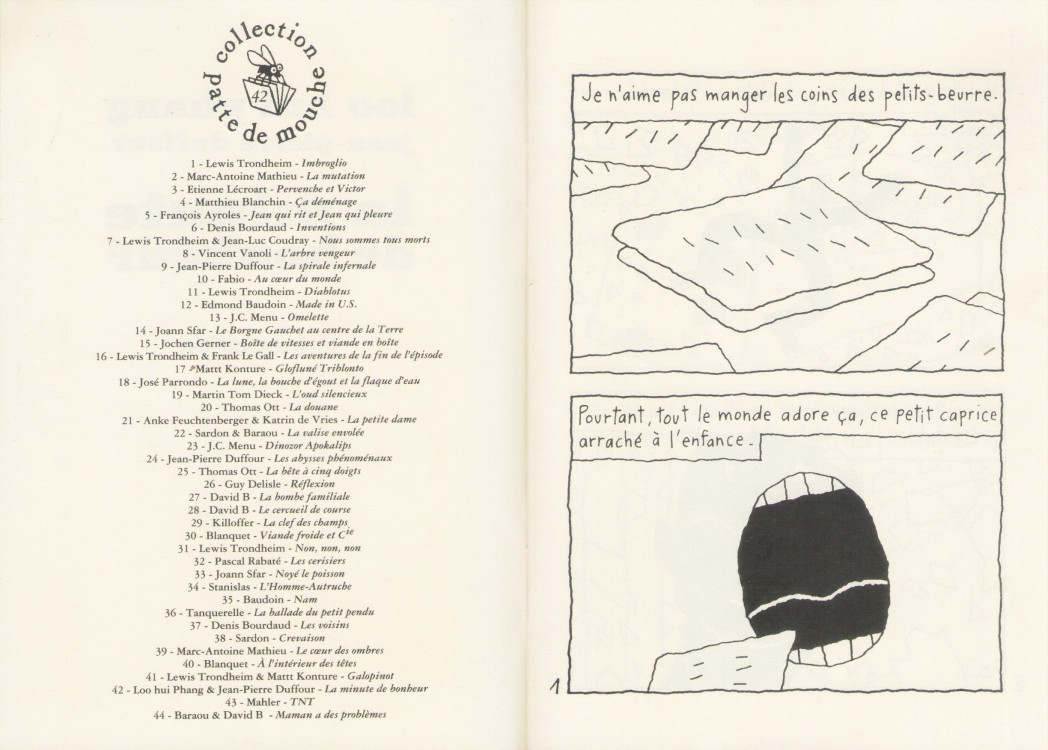 collection
patte de mouche
42
1 - Lewis Trondheim - Imbroglio
2 - Marc-Antoine Mathieu - La mutation
3 - Etienne Lécroart - Pervenche et Victor
4 - Matthieu Blanchin - Ça déménage
5 - François Ayroles - Jean qui rit et Jean qui pleure
6 - Denis Bourdaud - Inventions
7 - Lewis Trondheim & Jean-Luc Coudray - Nous sommes tous morts
8 - Vincent Vanoli - L'arbre vengeur
9 - Jean-Pierre Duffour - La spirale infernale
10 - Fabio - Au cœur du monde
11 - Lewis Trondheim - Diablotus
12 - Edmond Baudoin - Made in U.S.
13 - J.C. Menu - Omelette
14 - Joann Sfar - Le Borgne Gauchet au centre de la Terre
15 - Jochen Gerner - Boîte de vitesses et viande en boîte
16 - Lewis Trondheim & Frank Le Gall - Les aventures de la fin de l'épisode
17 - Mattt Konture - Glofluné Triblonto
18 - José Parrondo - La lune, la bouche d'égout et la flaque d'eau
19 - Martin Tom Dieck - L'oud silencieux
20 - Thomas Ott - La douane
21 - Anke Feuchtenberger & Katrin de Vries - La petite dame
22 - Sardon & Baraou - La valise envolée
23 - J.C. Menu - Dinozor Apokalips
24 - Jean-Pierre Duffour - Les abysses phénoménaux
25 - Thomas Ott - La bête à cinq doigts
26 - Guy Delisle - Réflexion
27 - David B - La bombe familiale
28 - David B - Le cercueil de course
29 - Killoffer - La clef des champs
30 - Blanquet - Viande froide et Cie
31 - Lewis Trondheim - Non, non, non
32 - Pascal Rabaté - Les cerisiers
33 - Joann Sfar - Noyé le poisson
34 - Stanislas - L'Homme-Autruche
35 - Baudoin - Nam
36 - Tanquerelle - La ballade du petit pendu
37 - Denis Bourdaud - Les voisins
38 - Sardon - Crevaison
39 - Marc-Antoine Mathieu - Le cœur des ombres
40 - Blanquet - À l'intérieur des têtes
41 - Lewis Trondheim & Mattt Konture - Galopinot
42 - Loo hui Phang & Jean-Pierre Duffour - La minute de bonheur
43 - Mahler - TNT
44 - Baraou & David B - Maman a des problèmes
Je n'aime pas manger les coins des petits-beurre.
Pourtant, tout le monde adore ça, ce petit caprice
arraché à l'enfance.
1